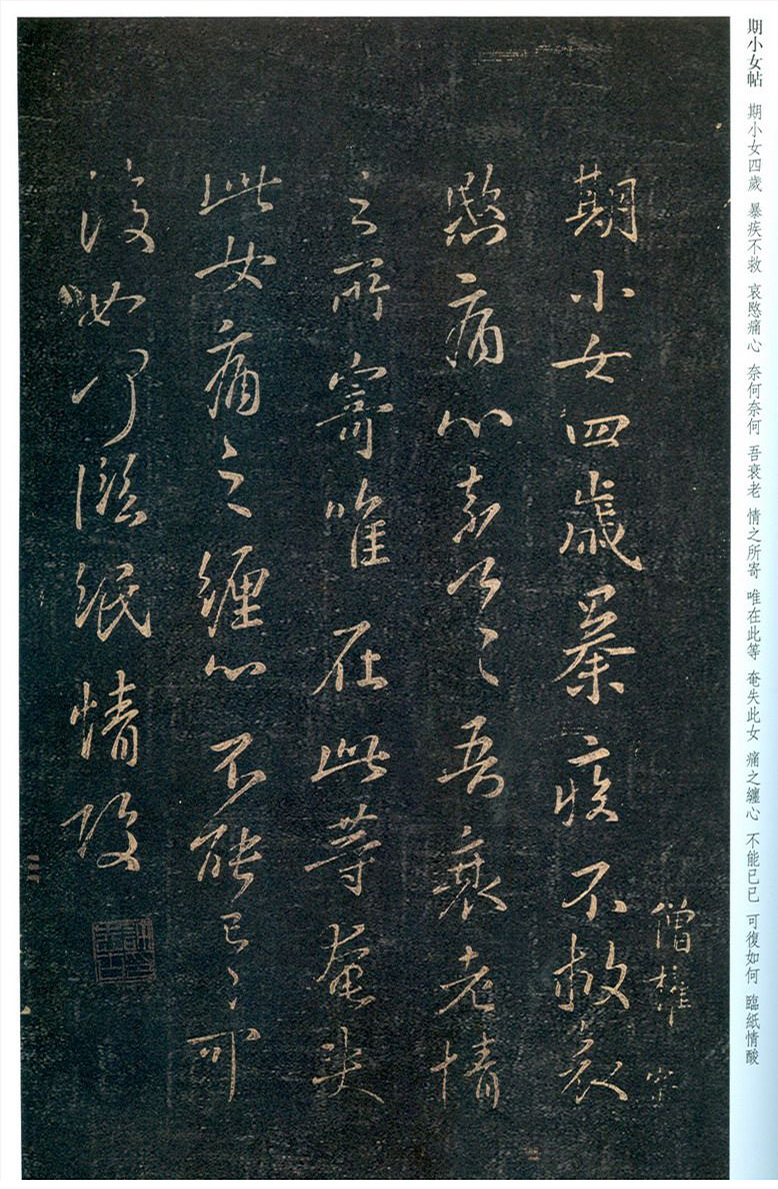 期小女帖 期小女四歲 暴疾不救 哀愍痛心 奈何奈何 吾衰老 情之所寄 唯在此等 奄失此女 痛之纏心 不能已已 可復如何 臨紙情酸
僧權
期小女四歲暴疾不救哀
愍痛心奈何〻吾衰老情
之所寄唯在此等奄失
此女痛之纏心不能已〻可
復如何臨紙情酸